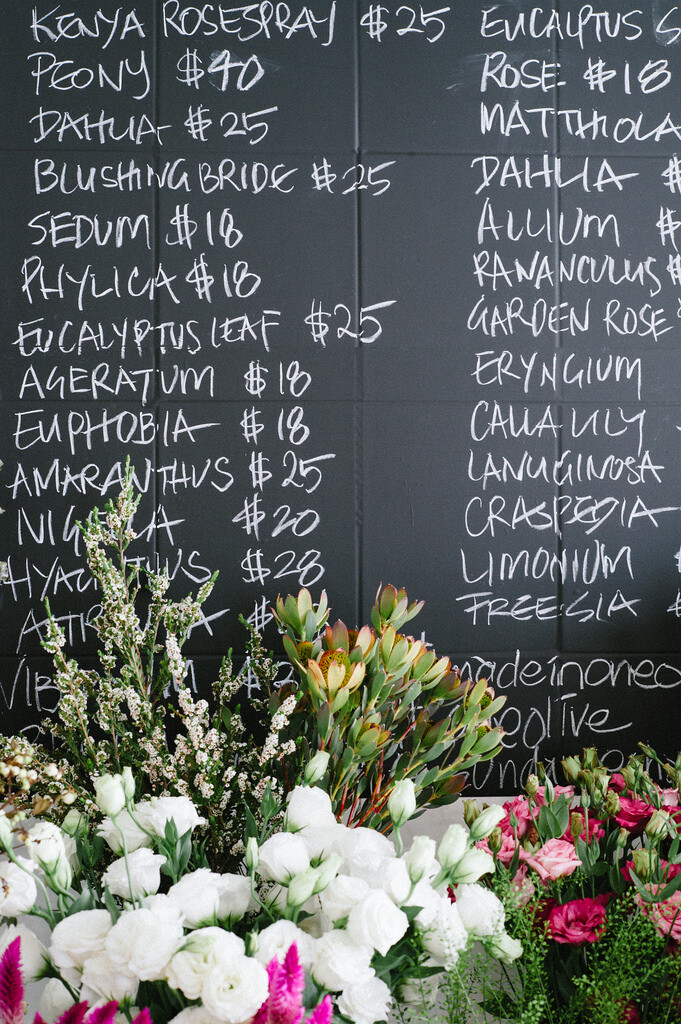 KENYA ROSESPRAY $25
PEONY $40
DAHLIA $25
BLUSHING BRIDE $25
SEDUM $18
PHYLICA $18
EUCALYPTUS LEAF $25
AGERATUM $18
EUPHOBIA $18
AMARANTHUS $25
$20
$28
EUCALPTUS S
ROSE $18
MATTHIOLA
DAHLIA $
ALLIUM $
RANANCULUS $
GARDEN ROSE
ERYNGIUM
CALLA LILY
LANUGINOSA
CRASPEDIA
LIMONIUM
FREESIA $
madeinoneo